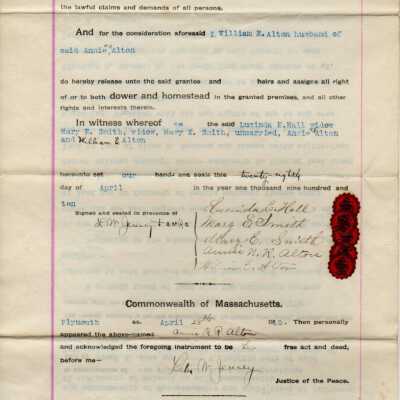 the lawful claims and demands of all persons.
And for the consideration aforesaid I William E. Alton husband of
said Annie Alton
do hereby release unto the said grantee and heirs and assigns all right
of or to both dower and homestead in the granted premises, and all other
rights and interests therein.
In witness whereof we the said Lucinda E. Hall widow
Mary E. Smith, widow, Mary E. Smith, unmarried, Annie Alton
and William E Alton
hereunto set our hands and seals this twenty-eighth
day of April in the year one thousand nine hundred and
ten
Signed and sealed in presence of
Lucinda E. Hall
Mary E Smith
Mary E. Smith
Annie N. R. Alton
William E. Alton
Commonwealth of Massachusetts.
Plymouth ss. April 19 Then personally
appeared the above-named Alton
and acknowledged the foregoing instrument to be free act and deed,
before me—
Justice of the Peace.